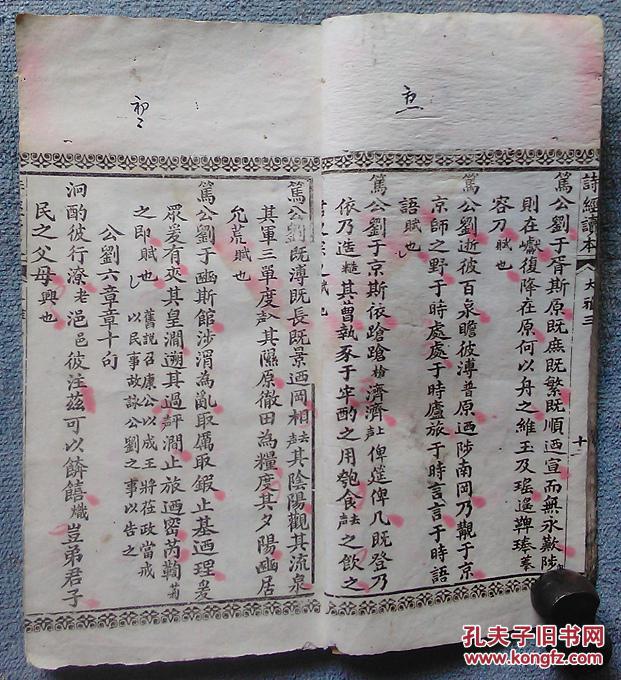 詩經讀本
大雅三
篤公劉于胥斯原旣庶旣繁旣順迺宣而無永歎陟
則在巘復降在原何以舟之維玉及瑤遙鞞琫
容刀賦也
篤公劉逝彼百泉瞻彼溥普原迺陟南岡乃觀于京
京師之野于時處處于時廬旅于時言言于時語
語賦也
篤公劉于京斯依蹌蹌濟濟上聲俾筵俾几旣登乃
依乃造其曹執豕于牢酌之用匏食去聲之飲之
君之宗之賦也
篤公劉旣溥旣長旣景迺岡相去聲其陰陽觀其流泉
其軍三單度其隰原徹田為糧度其夕陽豳居
允荒賦也
篤公劉于豳斯館涉渭為亂取厲取鍜止基迺理爰
眾爰有夾其皇澗遡其過平聲澗止旅迺密芮鞫菊
之即賦也 舊說召康公以成王將在政當戒以民事故詠公劉之事以告之
公劉六章章十句
泂酌彼行潦老浥邑彼注茲可以餴饎熾豈弟君子
民之父母興也
孔夫子旧书网
www.kongfz.com